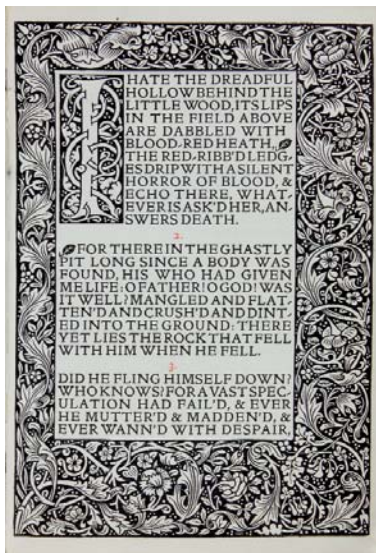 I HATE THE DREADFUL
HOLLOW BEHIND THE
LITTLE WOOD, ITS LIPS
IN THE FIELD ABOVE
ARE DABBLED WITH
BLOOD-RED HEATH,
THE RED-RIBB'D LEDG-
ES DRIP WITH A SILENT
HORROR OF BLOOD, &
ECHO THERE, WHAT-
EVER IS ASK'D HER, AN-
SWERS DEATH.
2.
FOR THERE IN THE GHASTLY
PIT LONG SINCE A BODY WAS
FOUND, HIS WHO HAD GIVEN
ME LIFE: O FATHER! O GOD! WAS
IT WELL? MANGLED AND FLAT-
TEN'D AND CRUSH'D AND DINT-
ED INTO THE GROUND: THERE
YET LIES THE ROCK THAT FELL
WITH HIM WHEN HE FELL.
3.
DID HE FLING HIMSELF DOWN?
WHO KNOWS? FOR A VAST SPEC-
ULATION HAD FAIL'D, & EVER
HE MUTTER'D & MADDEN'D, &
EVER WANN'D WITH DESPAIR,